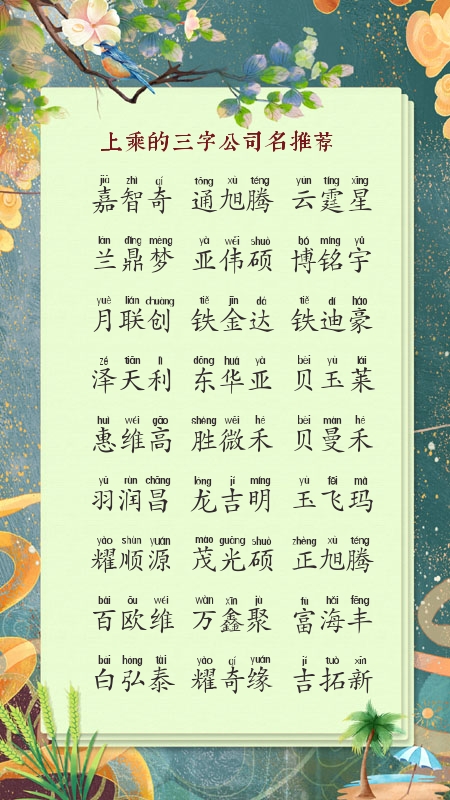 上乘的三字公司名推荐
jiā zhì qí tōng xù téng yún tíng xīng
嘉智奇 通旭腾 云霆星
lán dǐng mèng yà wěi shuò bó míng yǔ
兰鼎梦 亚伟硕 博铭宇
yuè lián chuàng tiě jīn dá tiě dí háo
月联创 铁金达 铁迪豪
zé tiān lì dōng huá yà bèi yù lái
泽天利 东华亚 贝玉莱
huì wéi gāo shèng wēi hé bèi màn hé
惠维高 胜微禾 贝曼禾
yǔ rùn chāng lóng jí míng yù fēi mǎ
羽润昌 龙吉明 玉飞玛
yào shùn yuán mào guāng shuò zhèng xù téng
耀顺源 茂光硕 正旭腾
bǎi ōu wéi wàn xīn jù fù hǎi fēng
百欧维 万鑫聚 富海丰
bái hóng tài yào qí yuán jí tuò xīn
白弘泰 耀奇缘 吉拓新